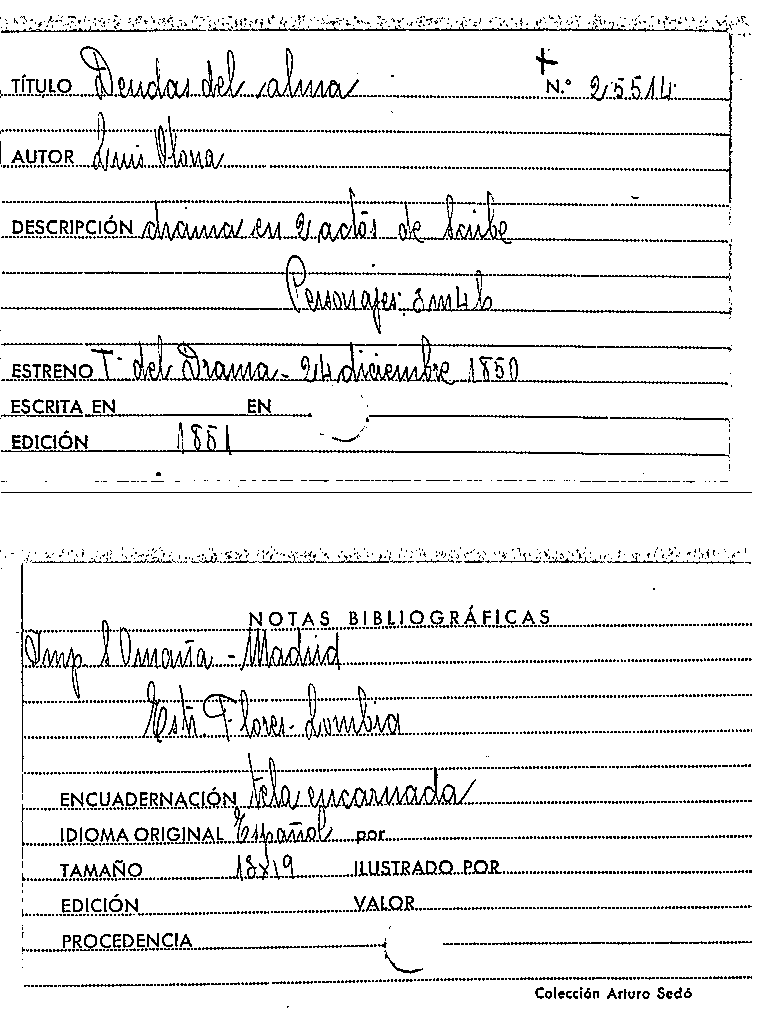 TÍTULO Deudas del alma N.º 25514
AUTOR Luis Olona
DESCRIPCIÓN drama en 2 actos de Scribe
Personajes: 3 m 4 h
ESTRENO Tº del Drama - 24 diciembre 1850
ESCRITA EN EN
EDICIÓN 1851
NOTAS BIBLIOGRÁFICAS
Imp S Omaña - Madrid
Estr. Flores - Lombia
ENCUADERNACIÓN tela encarnada
IDIOMA ORIGINAL Español por
TAMAÑO ILUSTRADO POR
EDICIÓN VALOR
PROCEDENCIA
Colección Arturo Sedó